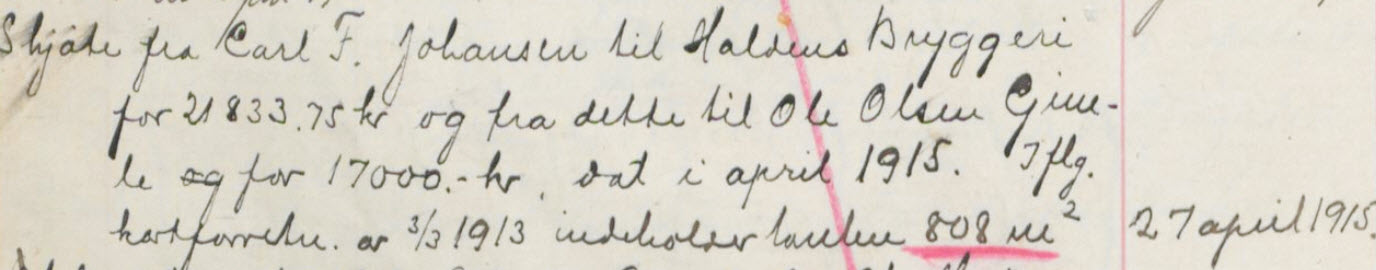 Skjøte fra Carl F. Johansen til Haldens Bryggeri
for 21833.75 kr og fra dette til Ole Olsen Gjm-
le og for 17000.- kr, dat i april 1915. Iflg.
kartforretn. av 3/3 1913 indeholder tomten 808 m² 27 april 1915.